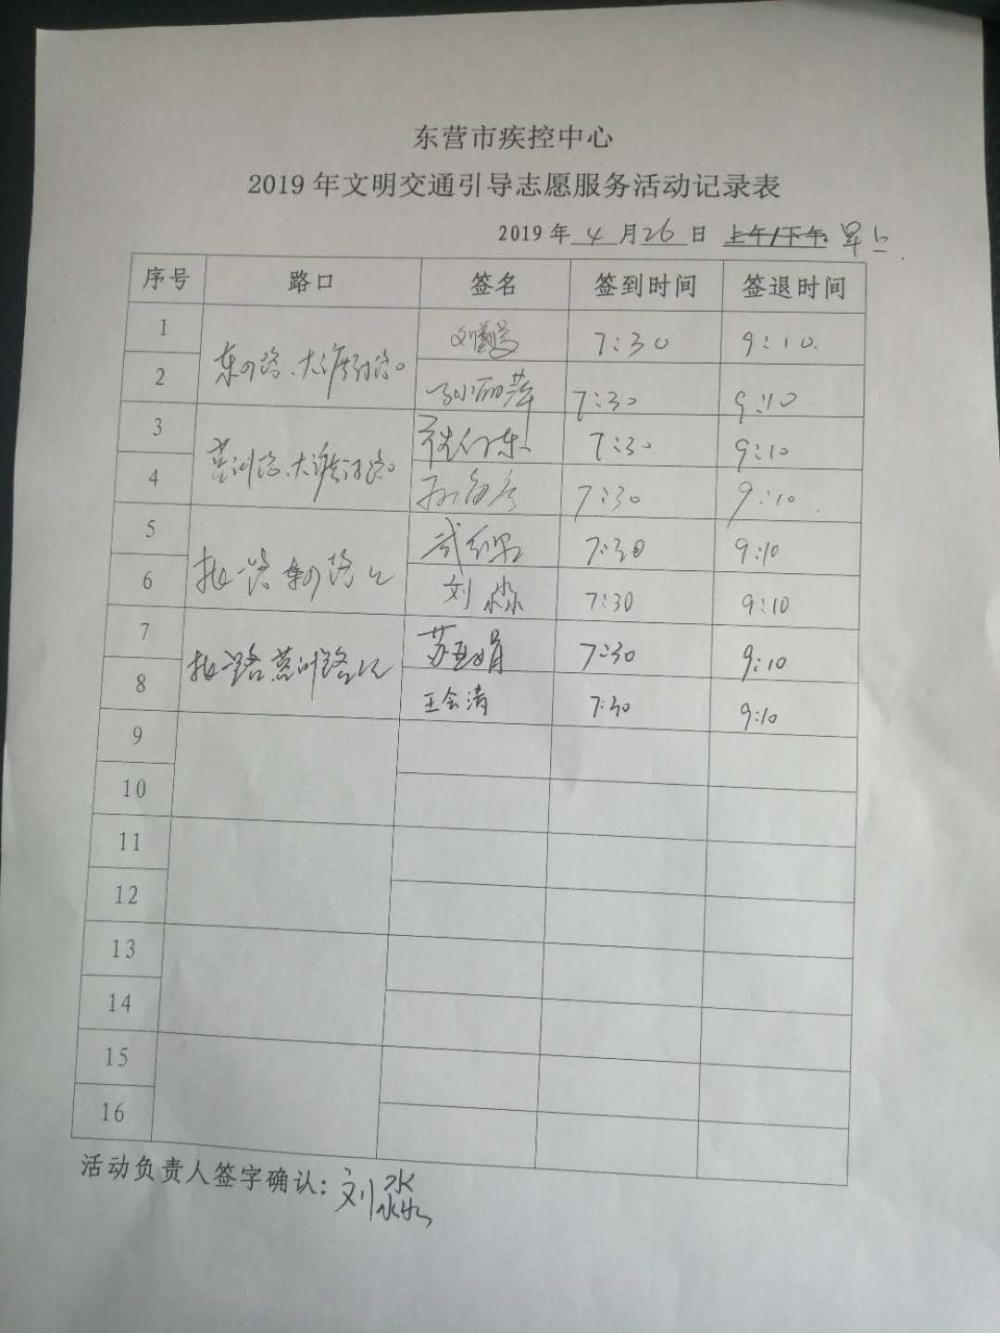 东营市疾控中心
2019年文明交通引导志愿服务活动记录表
2019年 4 月 26 日 上午/下午 早上
序号 路口 签名 签到时间 签退时间
1 7:30 9:10.
东四路、大渡河路口
2 孙丽萍 7:30 9:10
3 7:30 9:10
莒州路、大渡河路口
4 7:30 9:10
5 7:30 9:10
东四路口
6 刘淼 7:30 9:10
7 苏亚娟 7:30 9:10
莒州路口
8 王会清 7:30 9:10
9
10
11
12
13
14
15
16
活动负责人签字确认: 刘淼